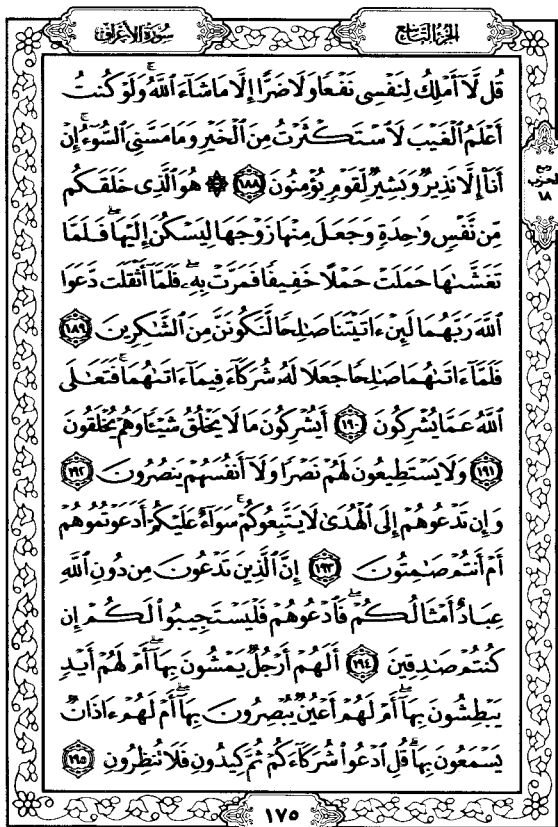 الجزء التاسع
سورة الأعراف
قُل لَّآ أَمۡلِكُ لِنَفۡسِي نَفۡعٗا وَلَا ضَرًّا إِلَّا مَا شَآءَ ٱللَّهُۚ وَلَوۡ كُنتُ
أَعۡلَمُ ٱلۡغَيۡبَ لَٱسۡتَكۡثَرۡتُ مِنَ ٱلۡخَيۡرِ وَمَا مَسَّنِيَ ٱلسُّوٓءُۚ إِنۡ
أَنَا۠ إِلَّا نَذِيرٞ وَبَشِيرٞ لِّقَوۡمٖ يُؤۡمِنُونَ ١٨٨ ۞ هُوَ ٱلَّذِي خَلَقَكُم
مِّن نَّفۡسٖ وَٰحِدَةٖ وَجَعَلَ مِنۡهَا زَوۡجَهَا لِيَسۡكُنَ إِلَيۡهَاۖ فَلَمَّا
تَغَشَّىٰهَا حَمَلَتۡ حَمۡلًا خَفِيفٗا فَمَرَّتۡ بِهِۦۖ فَلَمَّآ أَثۡقَلَت دَّعَوَا
ٱللَّهَ رَبَّهُمَا لَئِنۡ ءَاتَيۡتَنَا صَٰلِحٗا لَّنَكُونَنَّ مِنَ ٱلشَّٰكِرِينَ ١٨٩
فَلَمَّآ ءَاتَىٰهُمَا صَٰلِحٗا جَعَلَا لَهُۥ شُرَكَآءَ فِيمَآ ءَاتَىٰهُمَاۚ فَتَعَٰلَى
ٱللَّهُ عَمَّا يُشۡرِكُونَ ١٩٠ أَيُشۡرِكُونَ مَا لَا يَخۡلُقُ شَيۡـٔٗا وَهُمۡ يُخۡلَقُونَ
١٩١ وَلَا يَسۡتَطِيعُونَ لَهُمۡ نَصۡرٗا وَلَآ أَنفُسَهُمۡ يَنصُرُونَ ١٩٢
وَإِن تَدۡعُوهُمۡ إِلَى ٱلۡهُدَىٰ لَا يَتَّبِعُوكُمۡۚ سَوَآءٌ عَلَيۡكُمۡ أَدَعَوۡتُمُوهُمۡ
أَمۡ أَنتُمۡ صَٰمِتُونَ ١٩٣ إِنَّ ٱلَّذِينَ تَدۡعُونَ مِن دُونِ ٱللَّهِ
عِبَادٌ أَمۡثَالُكُمۡۖ فَٱدۡعُوهُمۡ فَلۡيَسۡتَجِيبُواْ لَكُمۡ إِن
كُنتُمۡ صَٰدِقِينَ ١٩٤ أَلَهُمۡ أَرۡجُلٞ يَمۡشُونَ بِهَآۖ أَمۡ لَهُمۡ أَيۡدٖ
يَبۡطِشُونَ بِهَآۖ أَمۡ لَهُمۡ أَعۡيُنٞ يُبۡصِرُونَ بِهَآۖ أَمۡ لَهُمۡ ءَاذَانٞ
يَسۡمَعُونَ بِهَاۗ قُلِ ٱدۡعُواْ شُرَكَآءَكُمۡ ثُمَّ كِيدُونِ فَلَا تُنظِرُونِ ١٩٥
ربع
الحزب
١٨
١٧٥